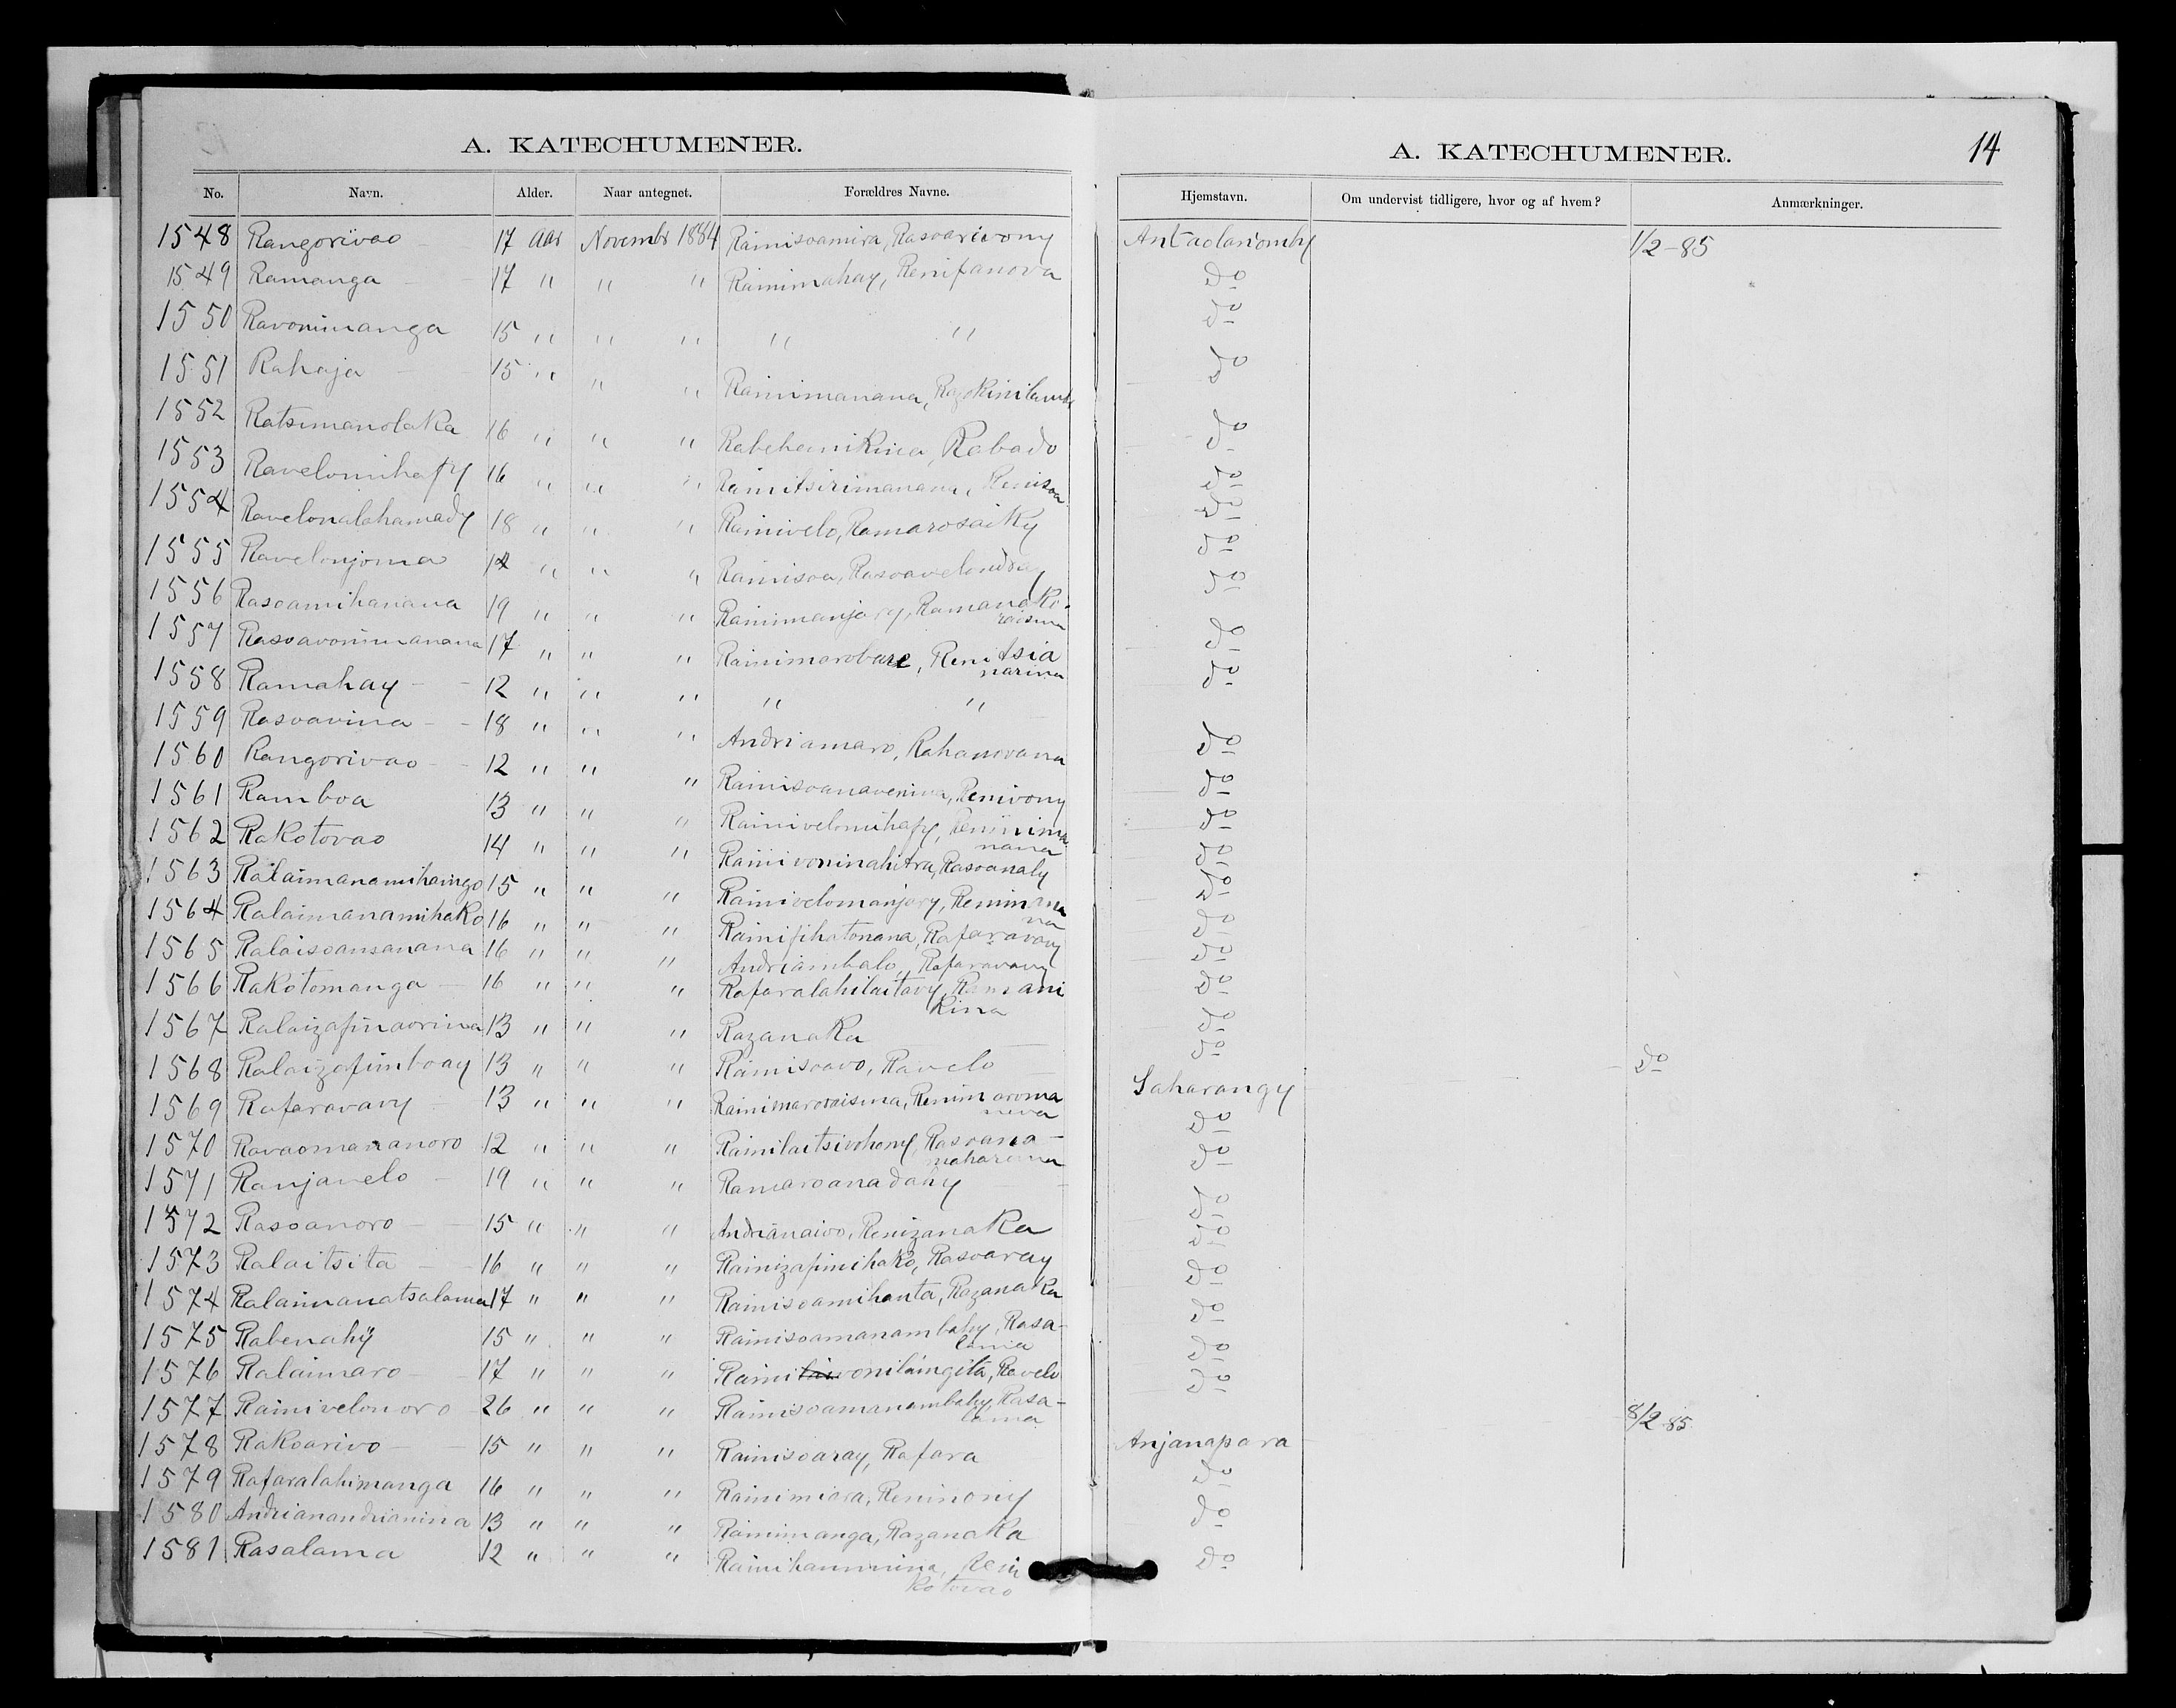 A. KATECHUMENER.
No. Navn. Alder. Naar antegnet. Forældres Navne.
1548 Rangorivao 17 Aar Novembr 1884 Rainisoamira, Rasoarivony
1549 Ramanga 17 " " " Rainimahay, Renifanova
1550 Ravonimanga 15 " " " " "
1551 Rahaja 15 " " " Rainimanana,
1552 Ratsimanolaka 16 " " " Rabehamikina, Rabado
1553 Ravelomihafy 16 " " " Rainitsirimanana, Renisoa
1554 Ravelonalahamady 18 " " " Rainivelo, Ramarosaiky
1555 Ravelonjoma 14 " " " Rainisoa, Rasoavelondray
1556 Rasoamihanana 19 " " " Rainimanjary, Ramanako-
raisina
1557 Rasoavonimanana 17 " " " Rainimarobare, Renitsia
narina
1558 Ramahay 12 " " " " "
1559 Rasoavina 18 " " " Andriamaro, Rahanovana
1560 Rangorivao 12 " " " Rainisoanavenina, Renivony
1561 Ramboa 13 " " " Rainivelomihafy, Reninima
nana
1562 Rakotovao 14 " " " Rainivoninahitra, Rasoanaly
1563 Ralaimanamihaingo 15 " " " Rainivelomanjary, Renimana
na
1564 Ralaimanamihako 16 " " " Rainifihatonana, Rafaravavy
1565 Ralaisoansanana 16 " " " Andriambalo, Rafaravavy
1566 Rakotomanga 16 " " " Rafaralahilaitavy, Ramani
kina
1567 Ralaizafinaorina 13 " " " Razanaka
1568 Ralaizafimboay 13 " " " Rainisoavo, Ravelo
1569 Rafaravavy 13 " " " Rainimaroraisina, Renimaroma
neva
1570 Ravaomananoro 12 " " " Rainilaitsivohony, Rasoana-
1571 Ranjavelo 19 " " " Ramaroanadahy
1572 Rasoanoro 15 " " " Andrianaivo, Renizanaka
1573 Ralaitsita 16 " " " Rainizafinihako, Rasoaray
1574 Ralaimanatsalama 17 " " " Rainisoamihanta, Razanaka
1575 Rabenahy 15 " " " Rainisoamanambahy, Rasa-
lama
1576 Ralaimaro 17 " " " Rainivonilaingita, Ravelo
1577 Rainivelonoro 26 " " " Rainisoamanambahy, Rasa-
lama
1578 Rakoarivo 15 " " " Rainisoaray, Rafara
1579 Rafaralahimanga 16 " " " Rainimiara, Reninony
1580 Andrianandrianina 13 " " " Rainimanga, Razanaka
1581 Rasalama 12 " " " Rainihaminina, Reni
kotovao
A. KATECHUMENER. 14
Hjemstavn. Om undervist tidligere, hvor og af hvem? Anmærkninger.
Antaolariomby 1/2-85
do
do
do
do
do
do
do
do
do
do
do
do
do
do
do
do
do
do
do
do do
Saharangy
do
do
do
do
do
do
do
do
8/2 85
Anjanapara
do
do
do